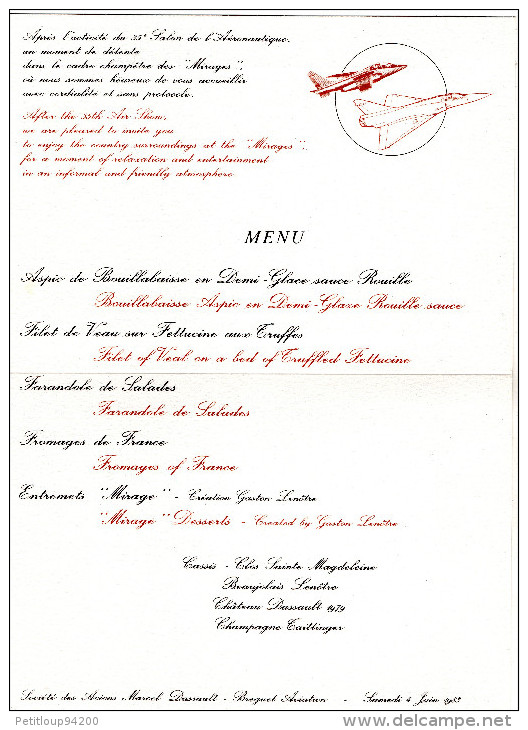 Après l'activité du 35e Salon de l'Aéronautique,
un moment de détente
dans le cadre champêtre des "Mirages",
où nous sommes heureux de vous accueillir
avec cordialité et sans protocole.
After the 35th Air Show,
we are pleased to invite you
to enjoy the country surroundings at the "Mirages"
for a moment of relaxation and entertainment
in an informal and friendly atmosphere
MENU
Aspic de Bouillabaisse en Demi-Glace sauce Rouille
Bouillabaisse Aspic en Demi-Glaze Rouille sauce
Filet de Veau sur Fettucine aux Truffes
Filet of Veal on a bed of Truffled Fettucine
Farandole de Salades
Farandole de Salades
Fromages de France
Fromages of France
Entremets "Mirage" - Création Gaston Lenôtre
"Mirage" Desserts - Created by Gaston Lenôtre
Cassis - Clos Sainte Magdeleine
Beaujolais Lenôtre
Château Dassault 1979
Champagne Taittinger
Société des Avions Marcel Dassault - Breguet Aviation - Samedi 4 Juin
Petitloup94200
delcampe.net